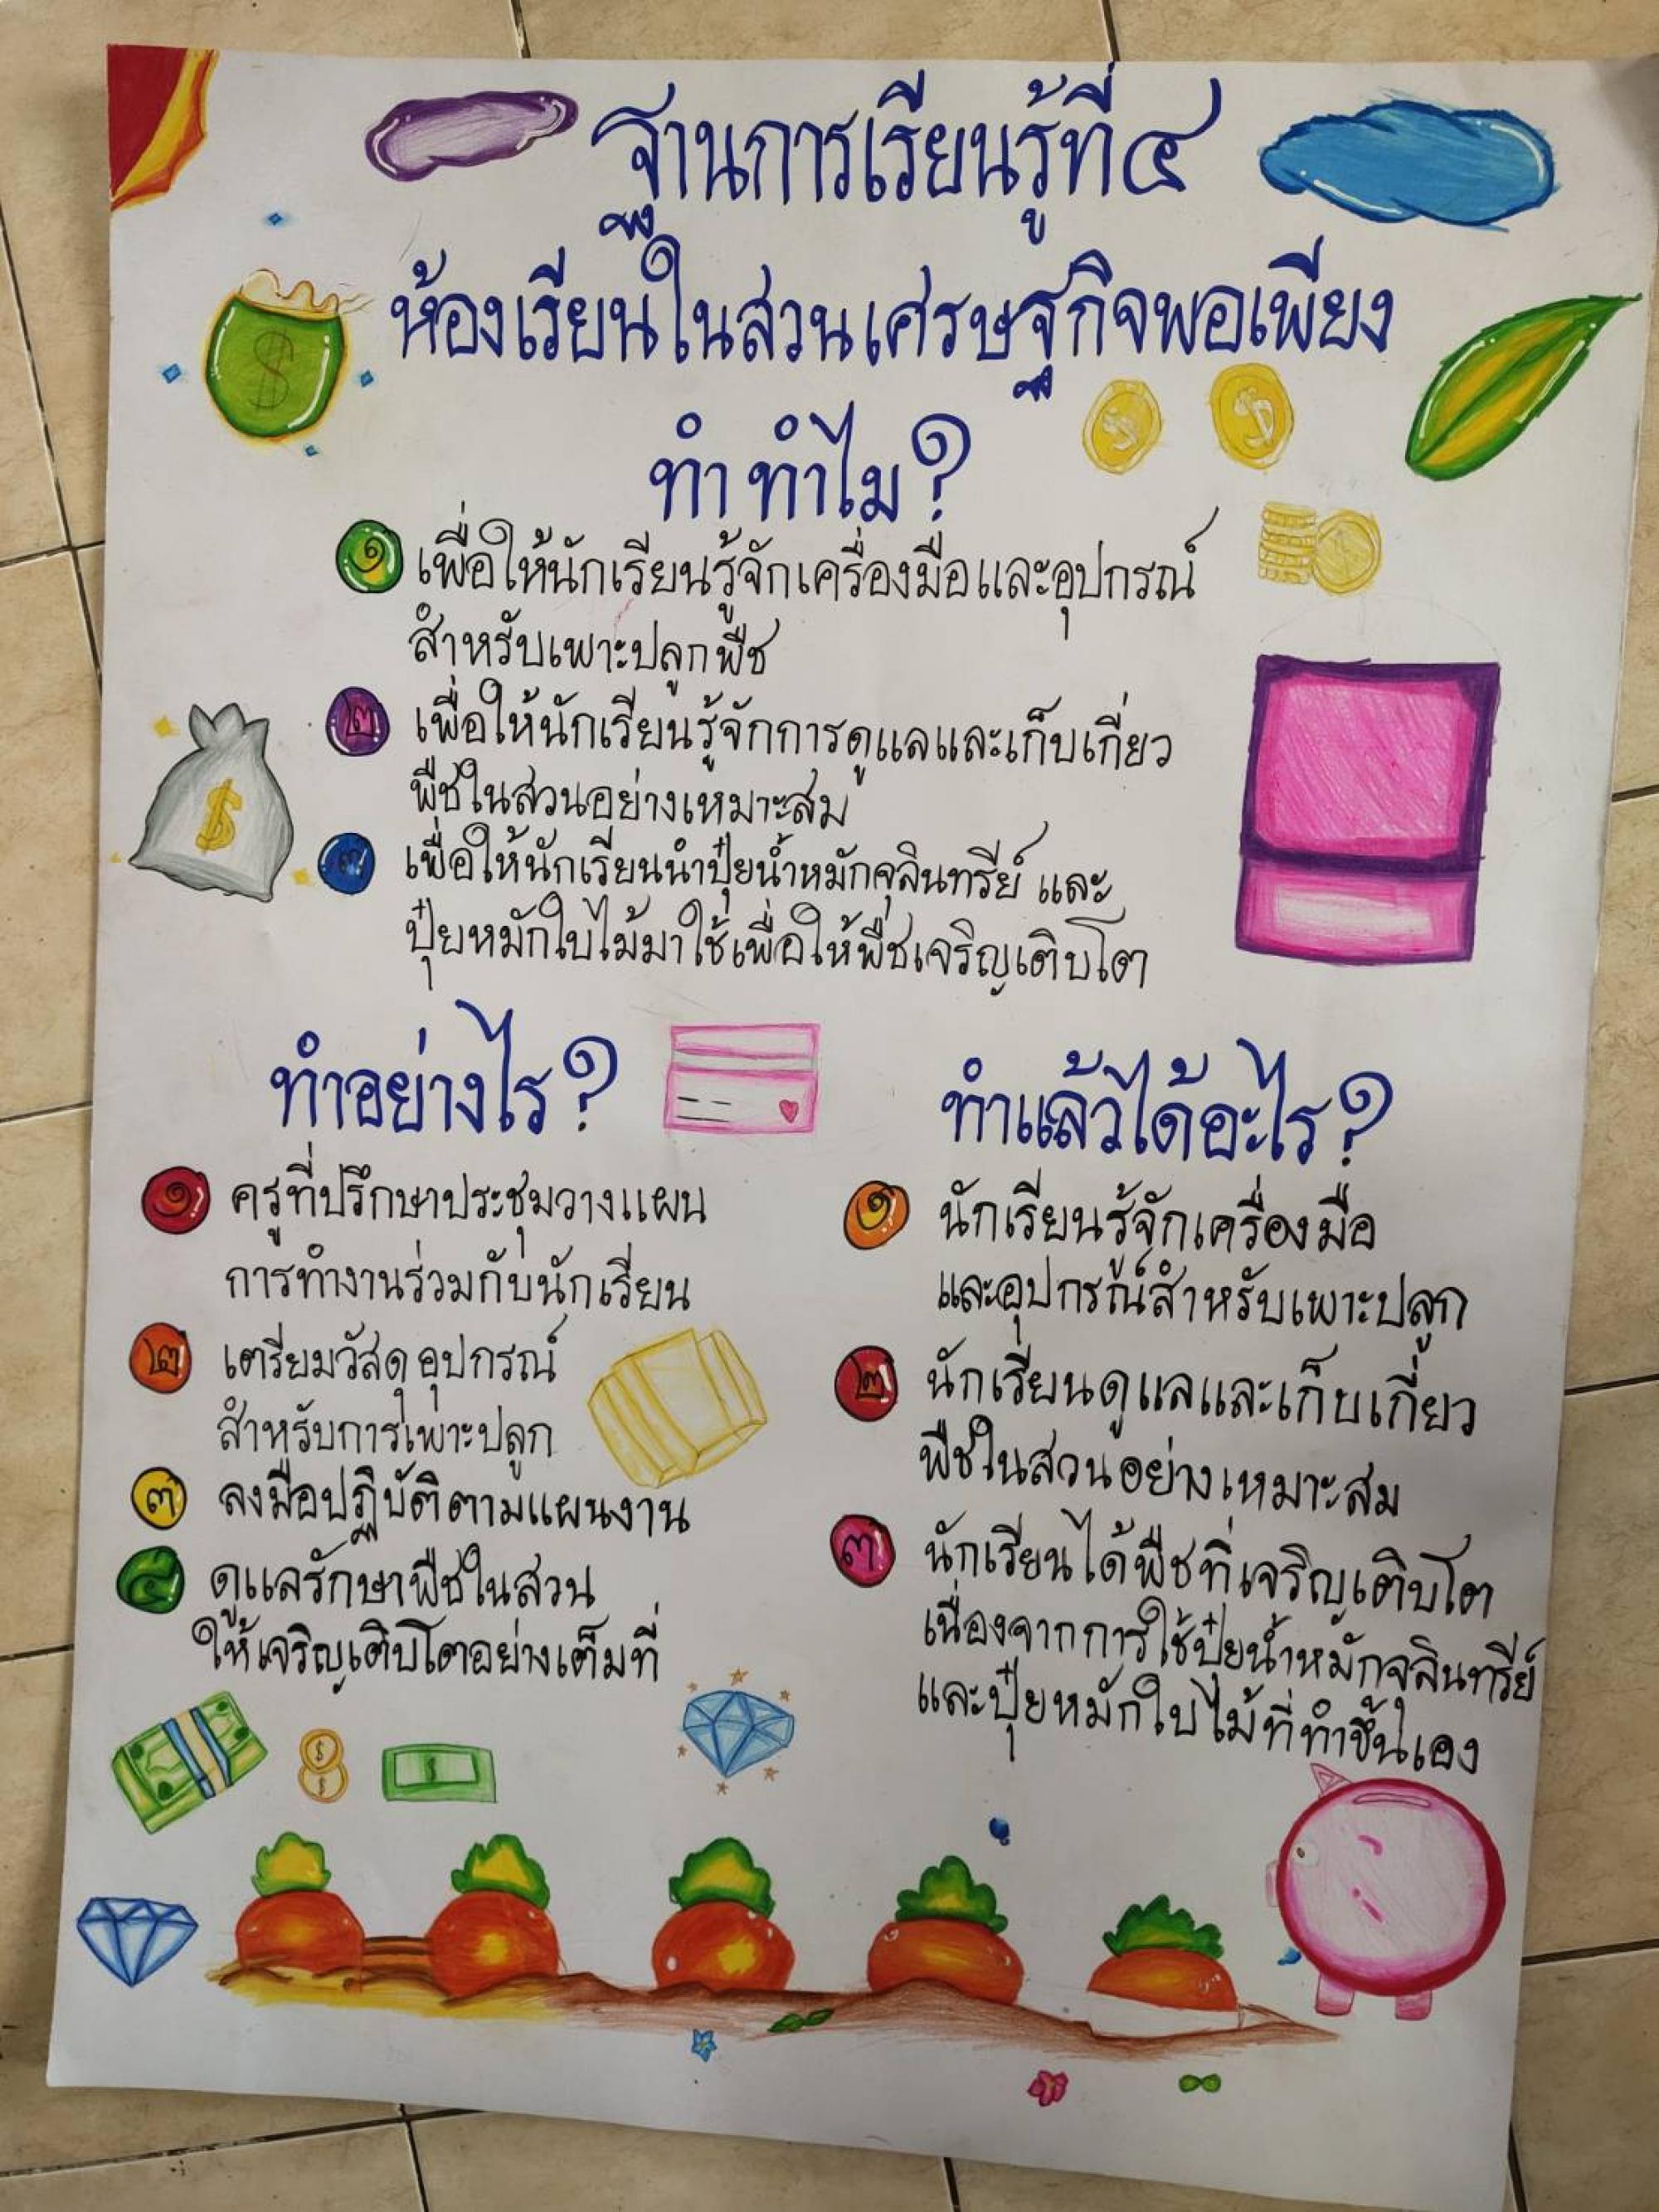 ฐานการเรียนรู้ที่ ๔
ห้องเรียนในสวนเศรษฐกิจพอเพียง
ทำทำไม?
๑ เพื่อให้นักเรียนรู้จักเครื่องมือและอุปกรณ์
สำหรับเพาะปลูกพืช
๒ เพื่อให้นักเรียนรู้จักการดูแลและเก็บเกี่ยว
พืชในสวนอย่างเหมาะสม
๓ เพื่อให้นักเรียนนำปุ๋ยน้ำหมักจุลินทรีย์ และ
ปุ๋ยหมักใบไม้มาใช้เพื่อให้พืชเจริญเติบโต
ทำอย่างไร?
๑ ครูที่ปรึกษาประชุมวางแผน
การทำงานร่วมกับนักเรียน
๒ เตรียมวัสดุอุปกรณ์
สำหรับการเพาะปลูก
๓ ลงมือปฏิบัติตามแผนงาน
๔ ดูแลรักษาพืชในสวน
ให้เจริญเติบโตอย่างเต็มที่
ทำแล้วได้อะไร?
๑ นักเรียนรู้จักเครื่องมือ
และอุปกรณ์สำหรับเพาะปลูก
๒ นักเรียนดูแลและเก็บเกี่ยว
พืชในสวนอย่างเหมาะสม
๓ นักเรียนได้พืชที่เจริญเติบโต
เนื่องจากการใช้ปุ๋ยน้ำหมักจุลินทรีย์
และปุ๋ยหมักใบไม้ที่ทำขึ้นเอง